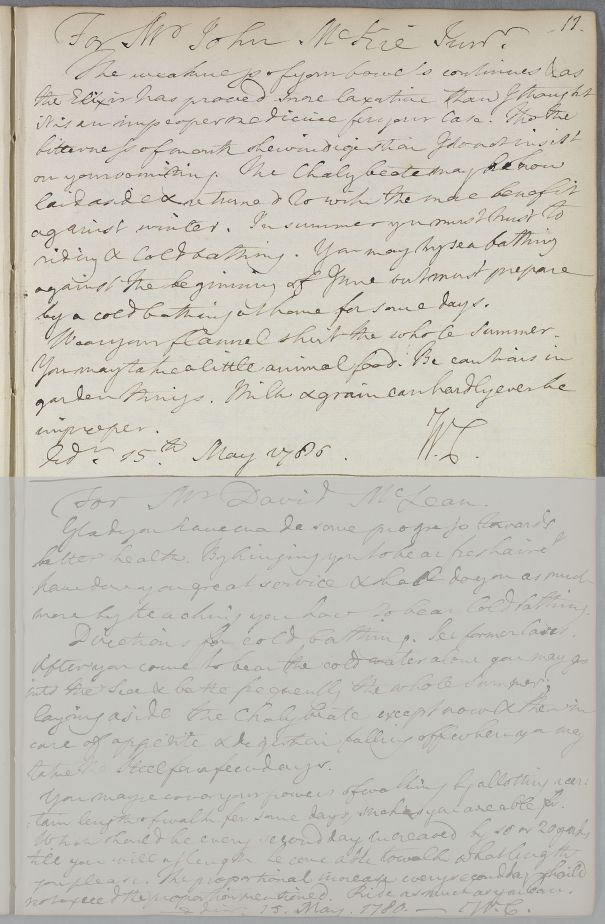 17.
For Mr John McKie Junr.
The weakness of your bowels continues & as
the Elixir has proved more laxative than I thought
it is an improper medicine for your case. Tho the
bitterness of mouth shew indigestion I do not insist
on your vomiting. The Chalybeate may be now
laid aside & returned to with the more benefit
against winter. In summer you must trust to
riding & cold bathing. You may try sea bathing
against the beginning of June but must prepare
by a cold bathing at home for some days.
Wear your flannel shirt the whole summer.
You may take a little animal food. Be cautious in
garden things. Milk & grain can hardly ever be
improper.
Edr. 15th May 1780. W.C.
For Mr David McLean.
Glad you have made some progress towards
better health. By bringing you to bear fresh air I
have done you great service & shall do you as much
more by teaching you how to bear Cold bathing.
Directions for cold bathing. See former cases.
After you come to bear the cold water alone you may go
into the Sea & bathe frequently the whole summer,
laying aside the Chalybeate except now & then in
case of appetite & digestion falling off when you may
take the Steel for a few days.
You may recover your powers of walking by allotting a cer-
tain length of walk for some days, such as you are able for.
Which should be every second day increased by 10 or 20 yards
till you will at length be come able to walk what length
you please. The proportional increase every second day should
not exceed the proportion mentioned. Ride as much as you can.
15. May. 1780. — W.C.